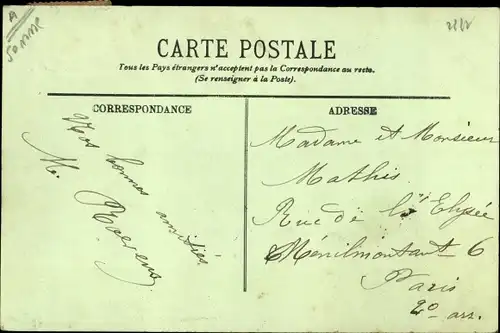 A
SOMME
CARTE POSTALE
Tous les Pays étrangers n'acceptent pas la Correspondance au recto.
(Se renseigner à la Poste).
CORRESPONDANCE
Nos bonnes amitiés
M.
ADRESSE
Madame et Monsieur
Mathis
Rue de l'Elysée
Ménilmontant 6
Paris
20 arr.